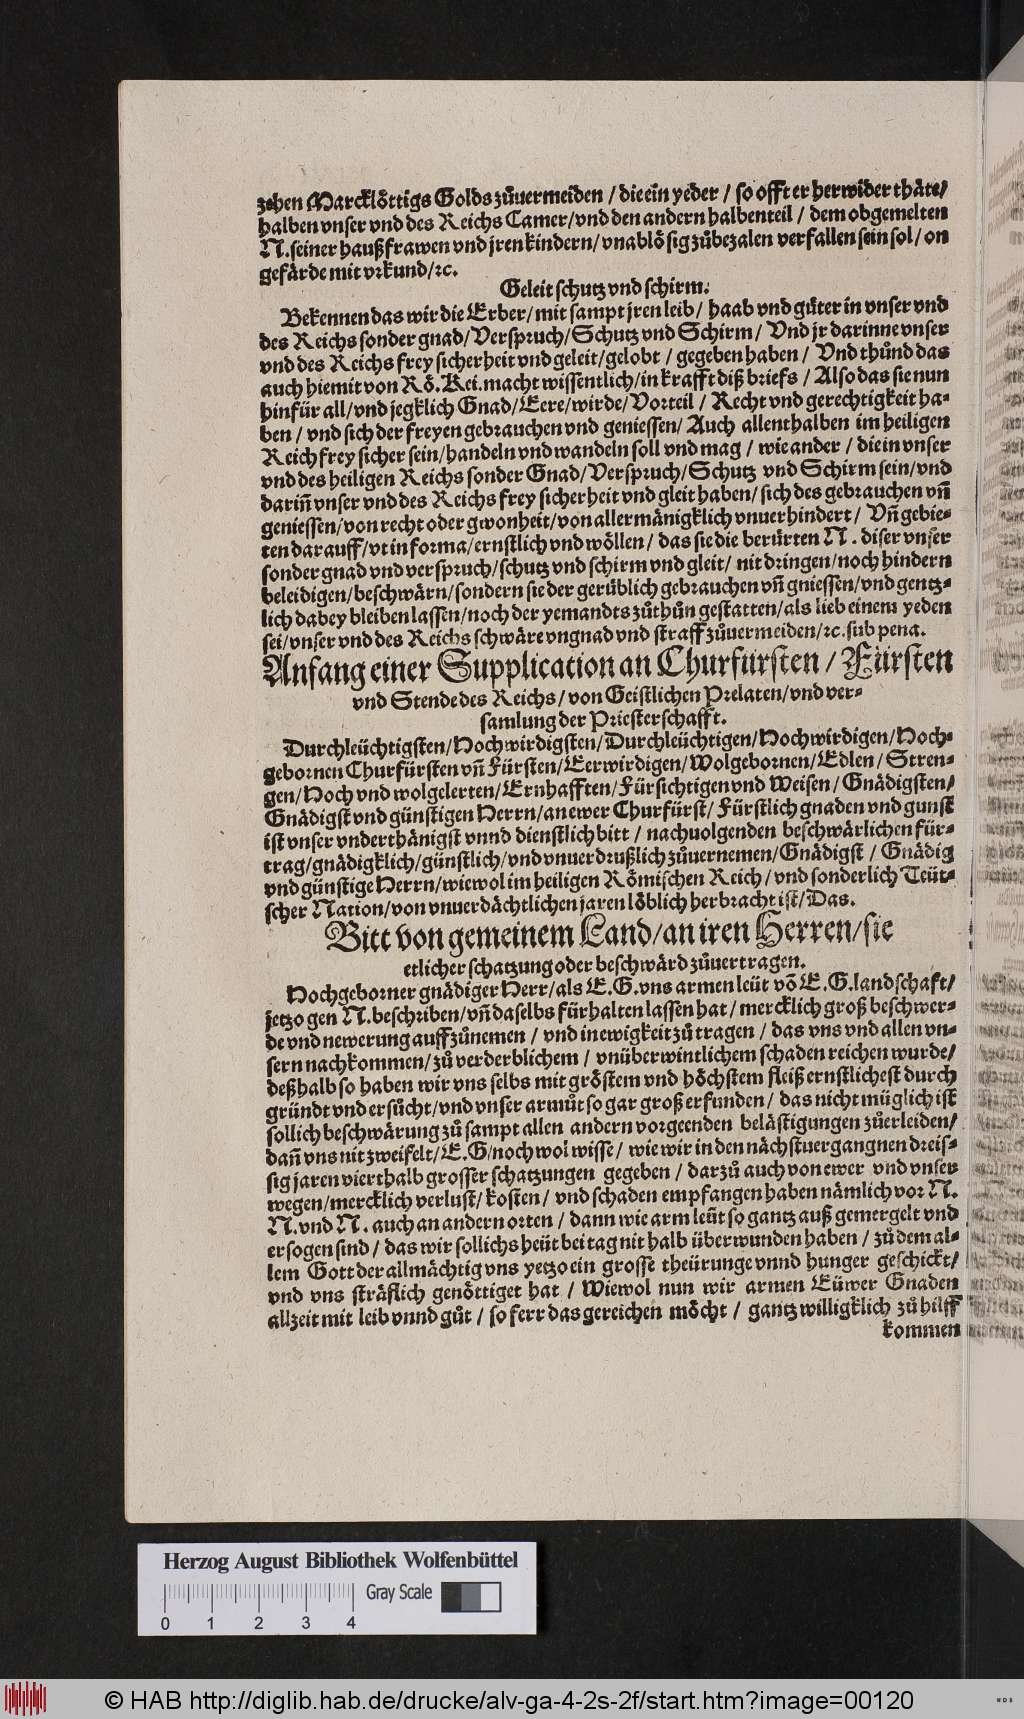 zehen Marcklöttigs Golds zůuermeiden / die ein yeder / so offt er herwider thäte/
halben vnser vnd des Reichs Camer/vnd den andern halbenteil / dem obgemelten
N. seiner haußfrawen vnd jren kindern/vnablösig zůbezalen verfallen sein sol/ on
gefärde mit vrkund/ꝛc.
Geleit schutz vnd schirm.
Bekennen das wir die Erber/mit sampt jren leib/ haab vnd güter in vnser vnd
des Reichs sonder gnad/Verspruch/Schutz vnd Schirm/ Vnd jr darinne vnser
vnd des Reichs frey sicherheit vnd geleit/gelobt / gegeben haben/ Vnd thůnd das
auch hiemit von Rö. Kei. macht wissentlich/in krafft diß briefs / Also das sie nun
hinfür all/vnd jegklich Gnad/Eere/wirde/Vorteil / Recht vnd gerechtigkeit ha-
ben / vnd sich der freyen gebrauchen vnd geniessen/ Auch allenthalben im heiligen
Reich frey sicher sein/handeln vnd wandeln soll vnd mag / wie ander / die in vnser
vnd des heiligen Reichs sonder Gnad/Verspruch/Schutz vnd Schirm sein/vnd
dariñ vnser vnd des Reichs frey sicherheit vnd gleit haben/ sich des gebrauchen vñ
geniessen/von recht oder gwonheit/von allermänigklich vnuerhindert/ Vñ gebie-
ten darauff/vt in forma/ernstlich vnd wöllen/ das sie die berürten N. diser vnser
sonder gnad vnd verspruch/schutz vnd schirm vnd gleit/ nit dringen/noch hindern
beleidigen/beschwärn/sondern sie der gerüblich gebrauchen vñ gniessen/vnd gentz-
lich dabey bleiben lassen/noch der yemandts zůthůn gestatten/als lieb einem yeden
sei/vnser vnd des Reichs schwäre vngnad vnd straff zůuermeiden/ꝛc. sub pena.
Anfang einer Supplication an Churfürsten / Fürsten
vnd Stende des Reichs/von Geistlichen Prelaten/vnd ver-
samlung der Priesterschafft.
Durchleüchtigsten/Hochwirdigsten/Durchleüchtigen/Hochwirdigen/Hoch-
gebornen Churfürsten vñ Fürsten/Eerwirdigen/Wolgebornen/Edlen/Stren-
gen/Hoch vnd wolgelerten/Ernhafften/Fürsichtigen vnd Weisen/Gnädigsten/
Gnädigst vnd günstigen Herrn/an ewer Churfürst/Fürstlich gnaden vnd gunst
ist vnser vnderthänigst vnnd dienstlich bitt / nachuolgenden beschwärlichen für-
trag/gnädigklich/günstlich/vnd vnuerdrußlich zůuernemen/Gnädigst / Gnädig
vnd günstige Herrn/wiewol im heiligen Römischen Reich/vnd sonderlich Teüt-
scher Nation/von vnuerdächtlichen jaren löblich herbracht ist/Das.
Bitt von gemeinem Land/an iren Herren/sie
etlicher schatzung oder beschwärd zůuertragen.
Hochgeborner gnädiger Herr/als E. G. vns armen leüt võ E. G. landschaft/
jetzo gen N. beschriben/vñ daselbs fürhalten lassen hat/mercklich groß beschwer-
de vnd newerung auff zůnemen / vnd in ewigkeit zů tragen / das vns vnd allen vn-
sern nachkommen/zů verderblichem / vnüberwintlichem schaden reichen wurde/
deßhalb so haben wir vns selbs mit gröstem vnd höchstem fleiß ernstlichest durch
gründt vnd ersůcht/vnd vnser armůt so gar groß erfunden/das nicht müglich ist
sollich beschwärung zů sampt allen andern vorgeenden belästigungen zůerleiden/
dañ vns nit zweifelt/E. G/noch wol wisse/ wie wir in den nächstuergangnen dreis-
sig jaren vierthalb grosser schatzungen gegeben / darzů auch von ewer vnd vnser
wegen/mercklich verlust/kosten/ vnd schaden empfangen haben nämlich vor N.
N. vnd N. auch an andern orten / dann wie arm leüt so gantz auß gemergelt vnd
ersogen sind / das wir sollichs heüt bei tag nit halb überwunden haben / zů dem al-
lem Gott der allmächtig vns yetzo ein grosse theürunge vnnd hunger geschickt/
vnd vns sträflich genöttiget hat / Wiewol nun wir armen Eüwer Gnaden
allzeit mit leib vnnd gůt / so ferr das gereichen möcht / gantz willigklich zů hilff
kommen
Herzog August Bibliothek Wolfenbüttel
Gray Scale
0 1 2 3 4
© HAB http://diglib.hab.de/drucke/alv-ga-4-2s-2f/start.htm?image=00120